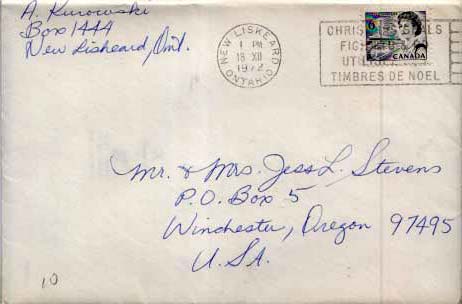 A. Kurowski
Box 1444
New Liskeard, Ont.
NEW LISKEARD
1 PM
18 XII
1972
ONTARIO
CHRIS
FIG
UTIL
TIMBRES DE NOEL
6
CANADA
Mr. & Mrs. Jess L. Stevens
P.O. Box 5
Winchester, Oregon 97495
U.S.A.
10